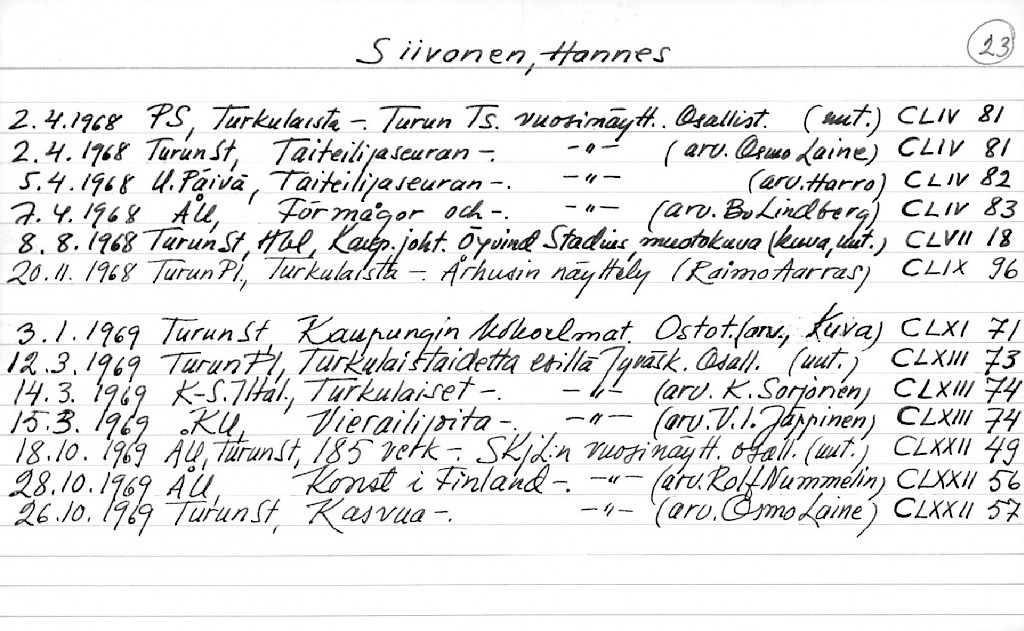 Siivonen, Hannes 23
2.4.1968 PS, Turkulaista -. Turun Ts. vuosinäytt.. Osallist. (uut.) CLIV 81
2.4.1968 TurunSt, Taiteilijaseuran -. -"- (arv. Osmo Laine) CLIV 81
5.4.1968 U.Päivä, Taiteilijaseuran -. -"- (arv. Harro) CLIV 82
7.4.1968 ÅU, Förmågor och -. -"- (arv. Bo Lindberg) CLIV 83
8.8.1968 TurunSt, Hbl, Kaup.joht. Öyvind Stadius, muotokuva (kuva, uut.) CLVII 18
20.11.1968 TurunPl., Turkulaista -. Århusin näyttely (Raimo Aarras) CLIX 96
3.1.1969 TurunSt, Kaupungin kokoelmat. Ostot. (arv., kuva) CLXI 71
12.3.1969 TurunPl, Turkulaistaidetta esillä Jyväsk. Osall. (uut.) CLXIII 73
14.3.1969 K-S.Iltal., Turkulaiset -. -"- (arv. K. Sorjonen) CLXIII 74
15.3.1969 .KU, Vierailijoita -. -"- (arv. V.I. Jäppinen) CLXIII 74
18.10.1969 ÅU, TurunSt, 185 verk -. SKjL:n vuosinäytt. osall. (uut.) CLXXII 49
28.10.1969 ÅU, Konst i Finland -. -"- (arv. Rolf Nummelin) CLXXII 56
26.10.1969 TurunSt, Kasvua -. -"- (arv. Osmo Laine) CLXXII 57